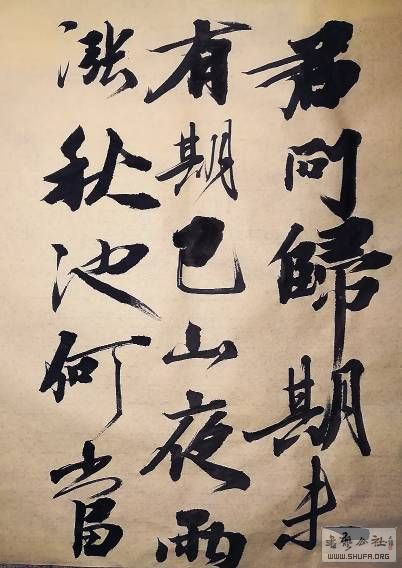 君问歸期未
有期巴山夜雨
漲秋池何當
WWW.SHUFA.ORG